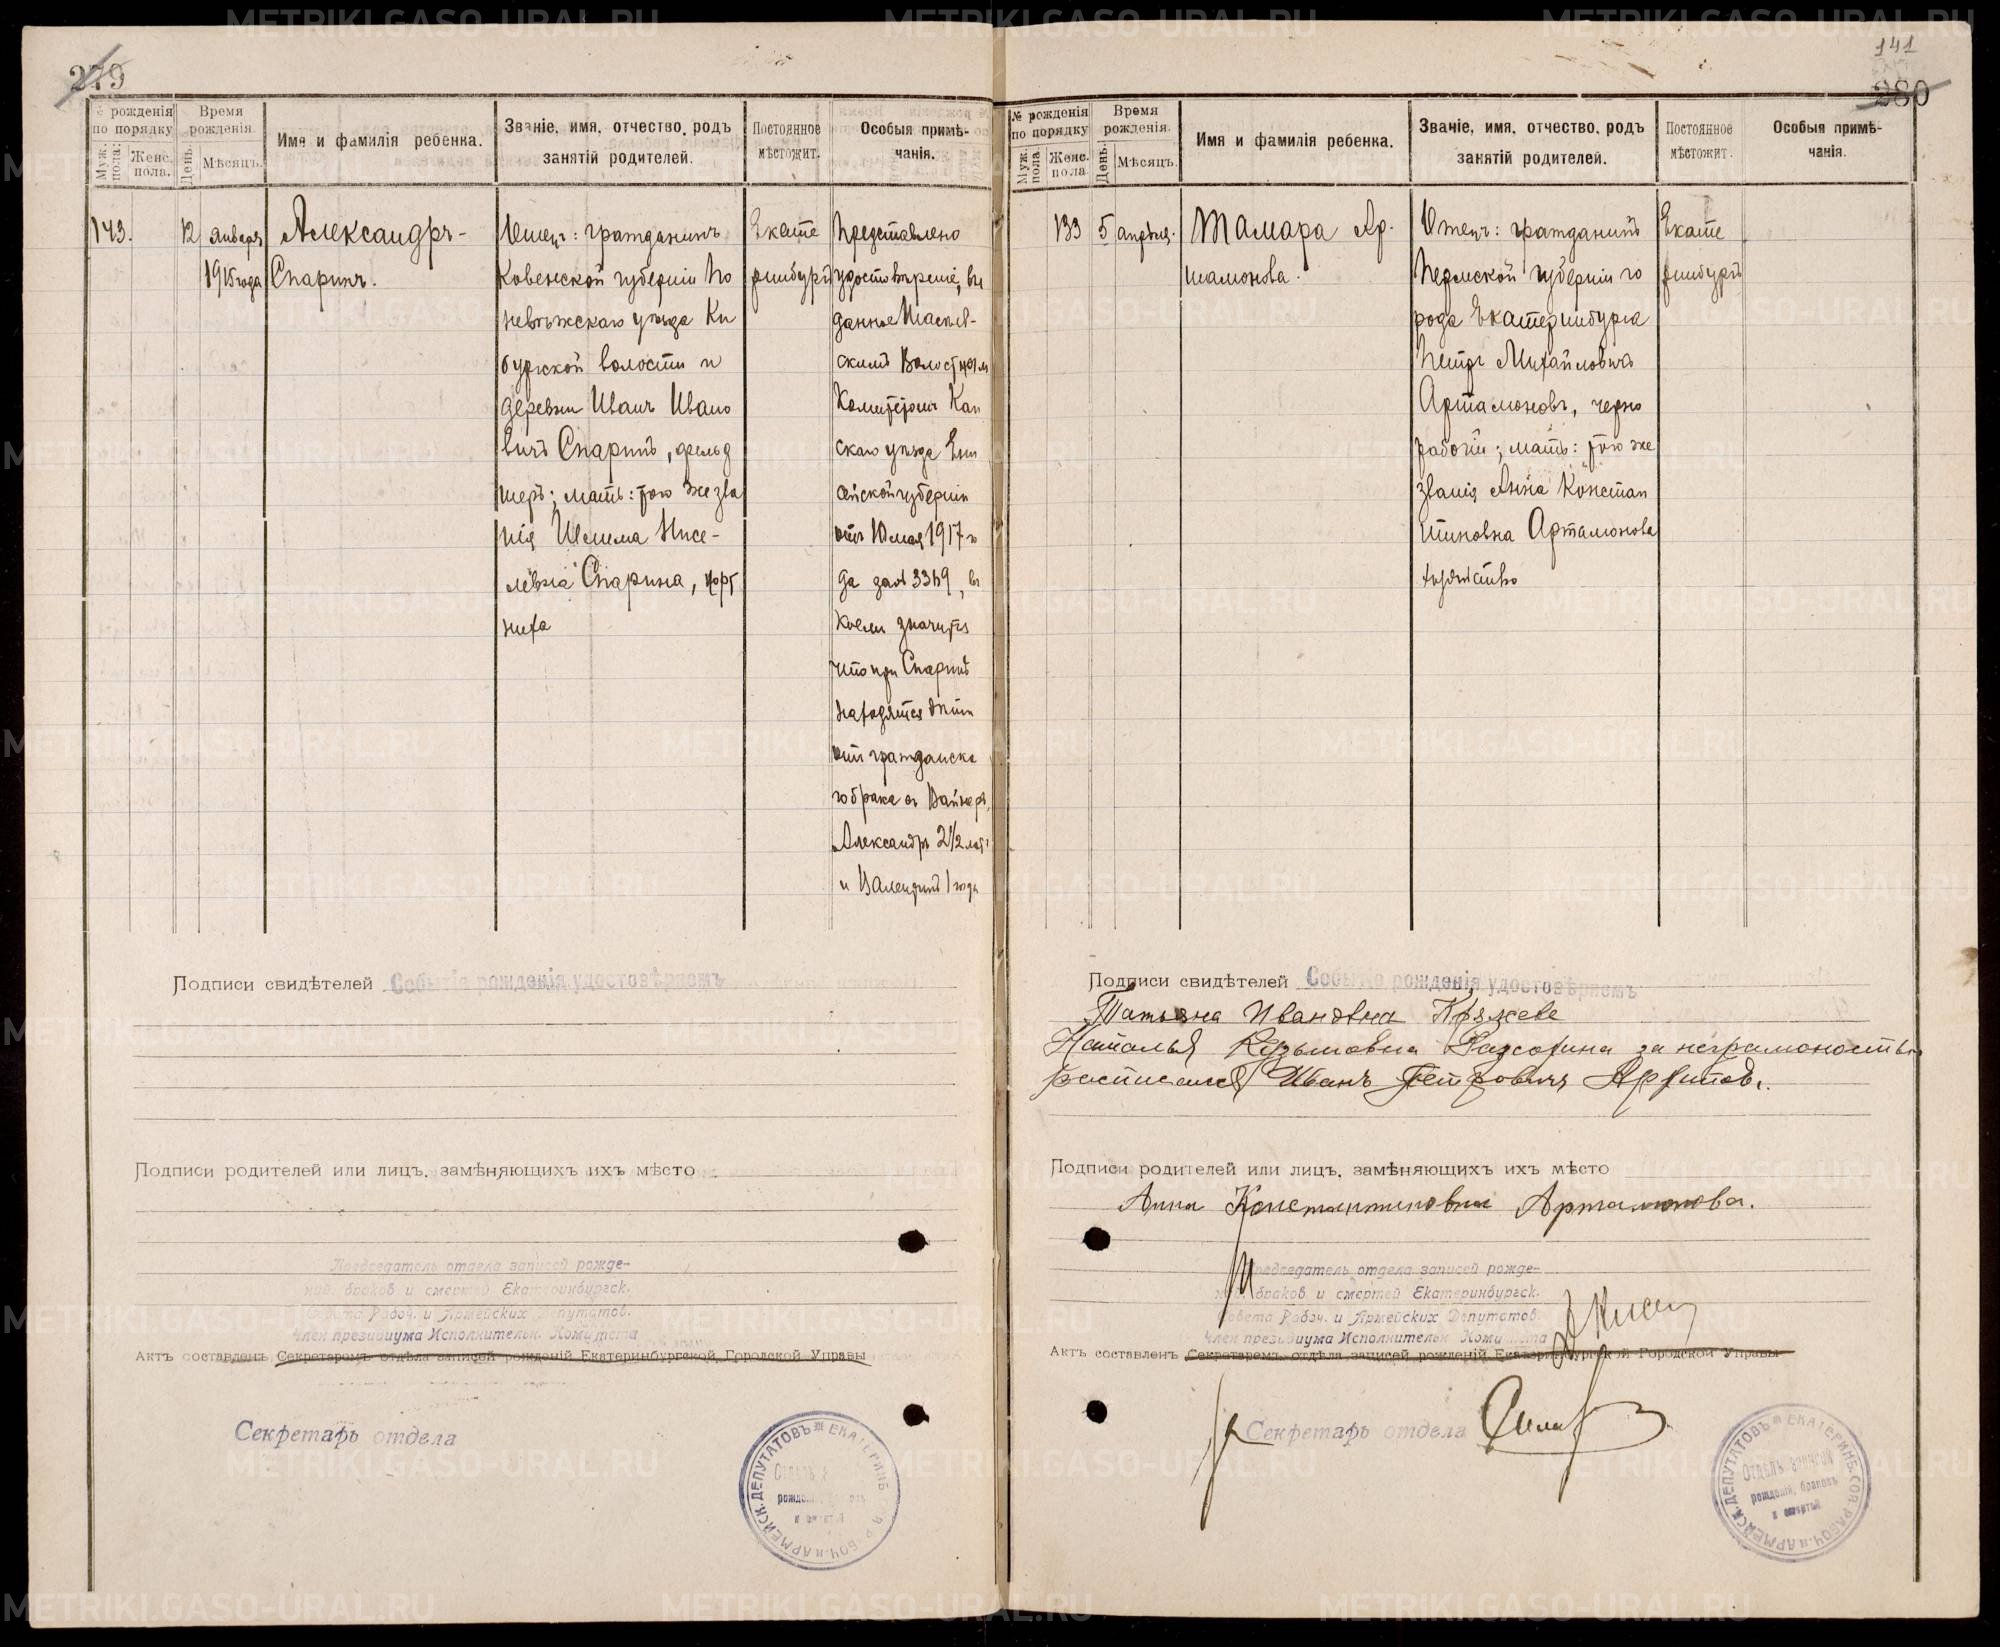 279
№ рожденія по порядку
Муж. пола:
Женс. пола.
Время рожденія.
День.
Мѣсяцъ.
Имя и фамилія ребенка.
Званіе, имя, отчество, родъ занятій родителей.
Постоянное мѣстожит.
Особыя примѣчанія.
143.
12
января
1915 года
Александръ
Спаринъ.
Отец: гражданинъ
Ковенской губерніи По
невѣжскаго уѣзда Ку
бургской волости и
деревни Иванъ Ивано
вичъ Спаринъ, фельд
шеръ; мать: того же зва
нія
левна Спарина,
ниха
Екате
ринбургъ
Представлено
удостовѣреніе, вы
данное
скимъ Волостнымъ
Комитетомъ Кан
скаго уѣзда Ени
сейской губерніи
отъ 10 мая 1917 го
да за № 3349, въ
коемъ значится
что при Спаринѣ
находятся дѣти
отъ гражданска
го брака съ Вайнеръ,
Александръ 2 1/2 лѣтъ
и Валентинъ 1 года
Подписи свидѣтелей Событіе рожденія удостовѣряемъ
Подписи родителей или лицъ, замѣняющихъ ихъ мѣсто
Председатель отдела записей рожде-
ний, браков и смертей Екатеринбургск.
Совета Рабоч. и Армейских Депутатов.
Член президиума Исполнительн. Комитета
Актъ составленъ Секретаремъ отдѣла записей рожденій Екатеринбургской Городской Управы
Секретарь отдела
141
280
№ рожденія по порядку
Муж. пола
Женс. пола
Время рожденія.
День.
Мѣсяцъ.
Имя и фамилія ребенка.
Званіе, имя, отчество, родъ занятій родителей.
Постоянное мѣстожит.
Особыя примѣчанія.
133
5
апрѣля.
Тамара Ар-
тамонова.
Отецъ: гражданинъ
Пермской губерніи го
рода Екатеринбурга
Петръ Михайловичъ
Артамоновъ, черно
рабочій; мать: того же
званія Анна Констан
тиновна Артамонова
Екате
ринбургъ
Подписи свидѣтелей Событіе рожденія удостовѣряемъ
Татьяна Ивановна Пряхева
Наталья Кузьмовна за неграмоность
росписался Иванъ Петровичъ Архипов.
Подписи родителей или лицъ, замѣняющихъ ихъ мѣсто
Анна Константиновна Артамонова.
Председатель отдела записей рожде-
ний, браков и смертей Екатеринбургск.
Совета Рабоч. и Армейских Депутатов.
Член президиума Исполнительн. Комитета
Актъ составленъ Секретаремъ отдѣла записей рожденій Екатеринбургской Городской Управы
Секретарь отдела
ЕКАТЕРИНБ. СОВ. РАБОЧ. и АРМЕЙСК. ДЕПУТАТОВЪ
Отделъ записей рожденій, браковъ и смертей
METRIKI.GASO-URAL.RU